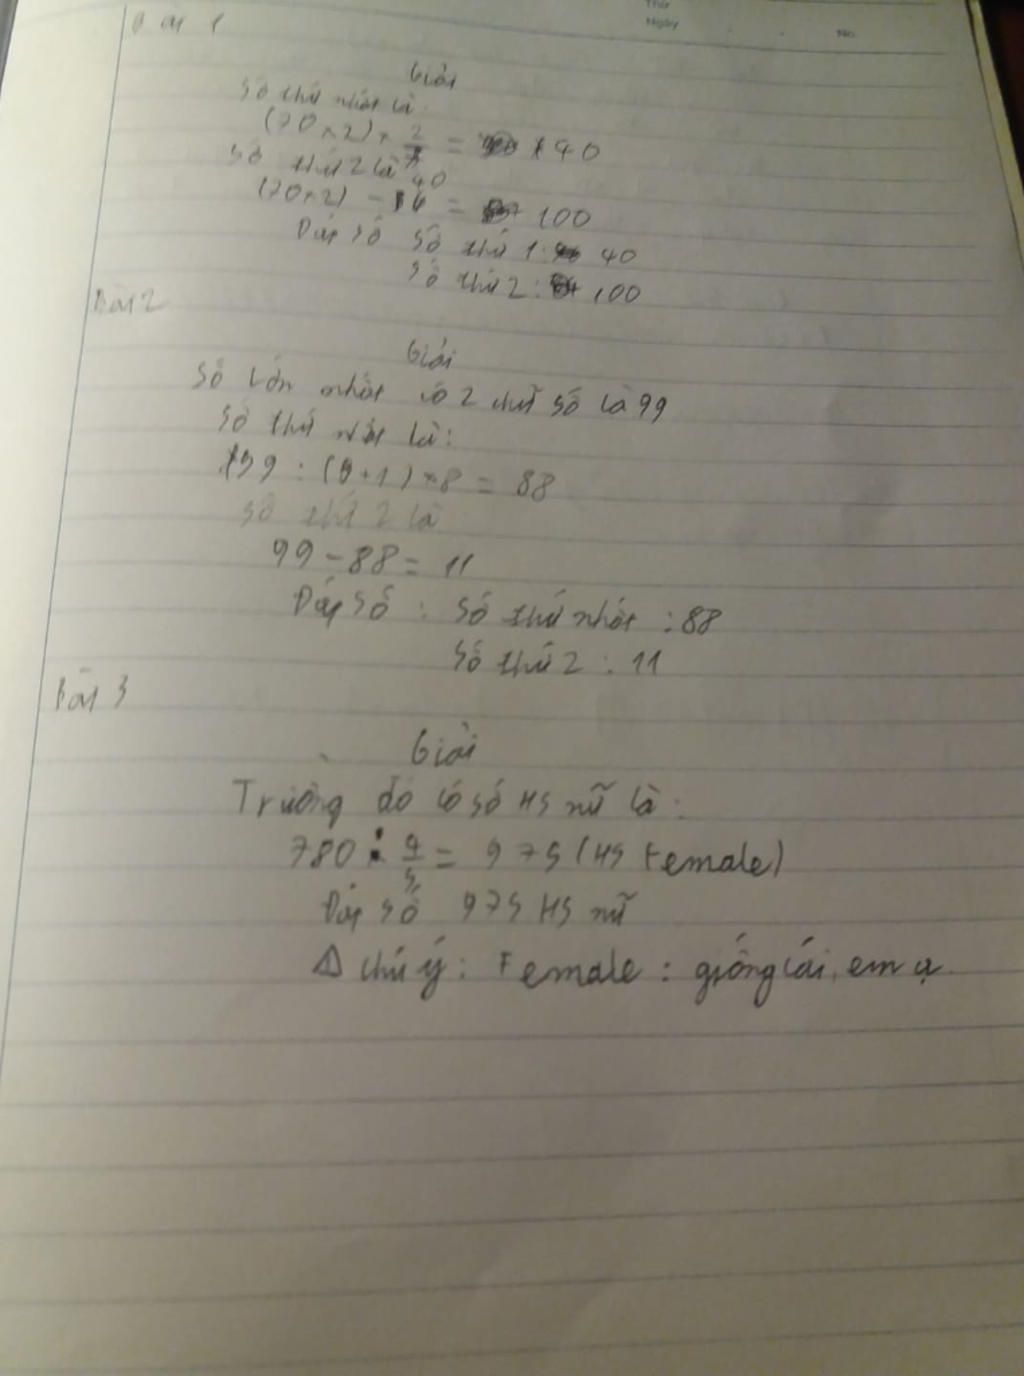 Thứ
Ngày
No.
Bài 1
Giải
Số thứ nhất là
(70 × 2) × 2/7 = 40
Số thứ 2 là
(70 × 2) - 40 = 100
Đáp số Số thứ 1: 40
Số thứ 2: 100
Bài 2
Giải
Số lớn nhất có 2 chữ số là 99
Số thứ nhất là:
99 : (8+1) × 8 = 88
Số thứ 2 là
99 - 88 = 11
Đáp số : Số thứ nhất : 88
Số thứ 2 : 11
Bài 3
Giải
Trường đó có số HS nữ là:
780 : 4/5 = 975 (HS Female)
Đáp số 975 HS nữ
Δ chú ý : Female : giống cái, em ạ.